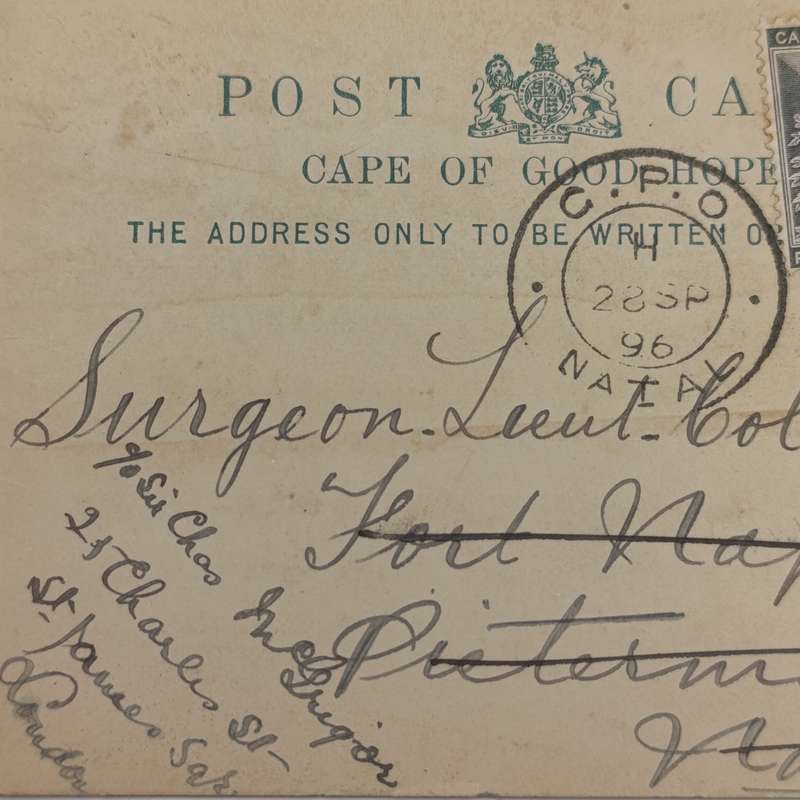 POST CA
DIEU ET MON DROIT
CAPE OF GOOD HOPE
THE ADDRESS ONLY TO BE WRITTEN O
CA
G.P.O
H
28 SP
96
NATAL
Surgeon-Lieut-Col
Fort Nap
Pieterm
Na
c/o Sir Chas McGrigor
25 Charles St
St. James Sqr.
London